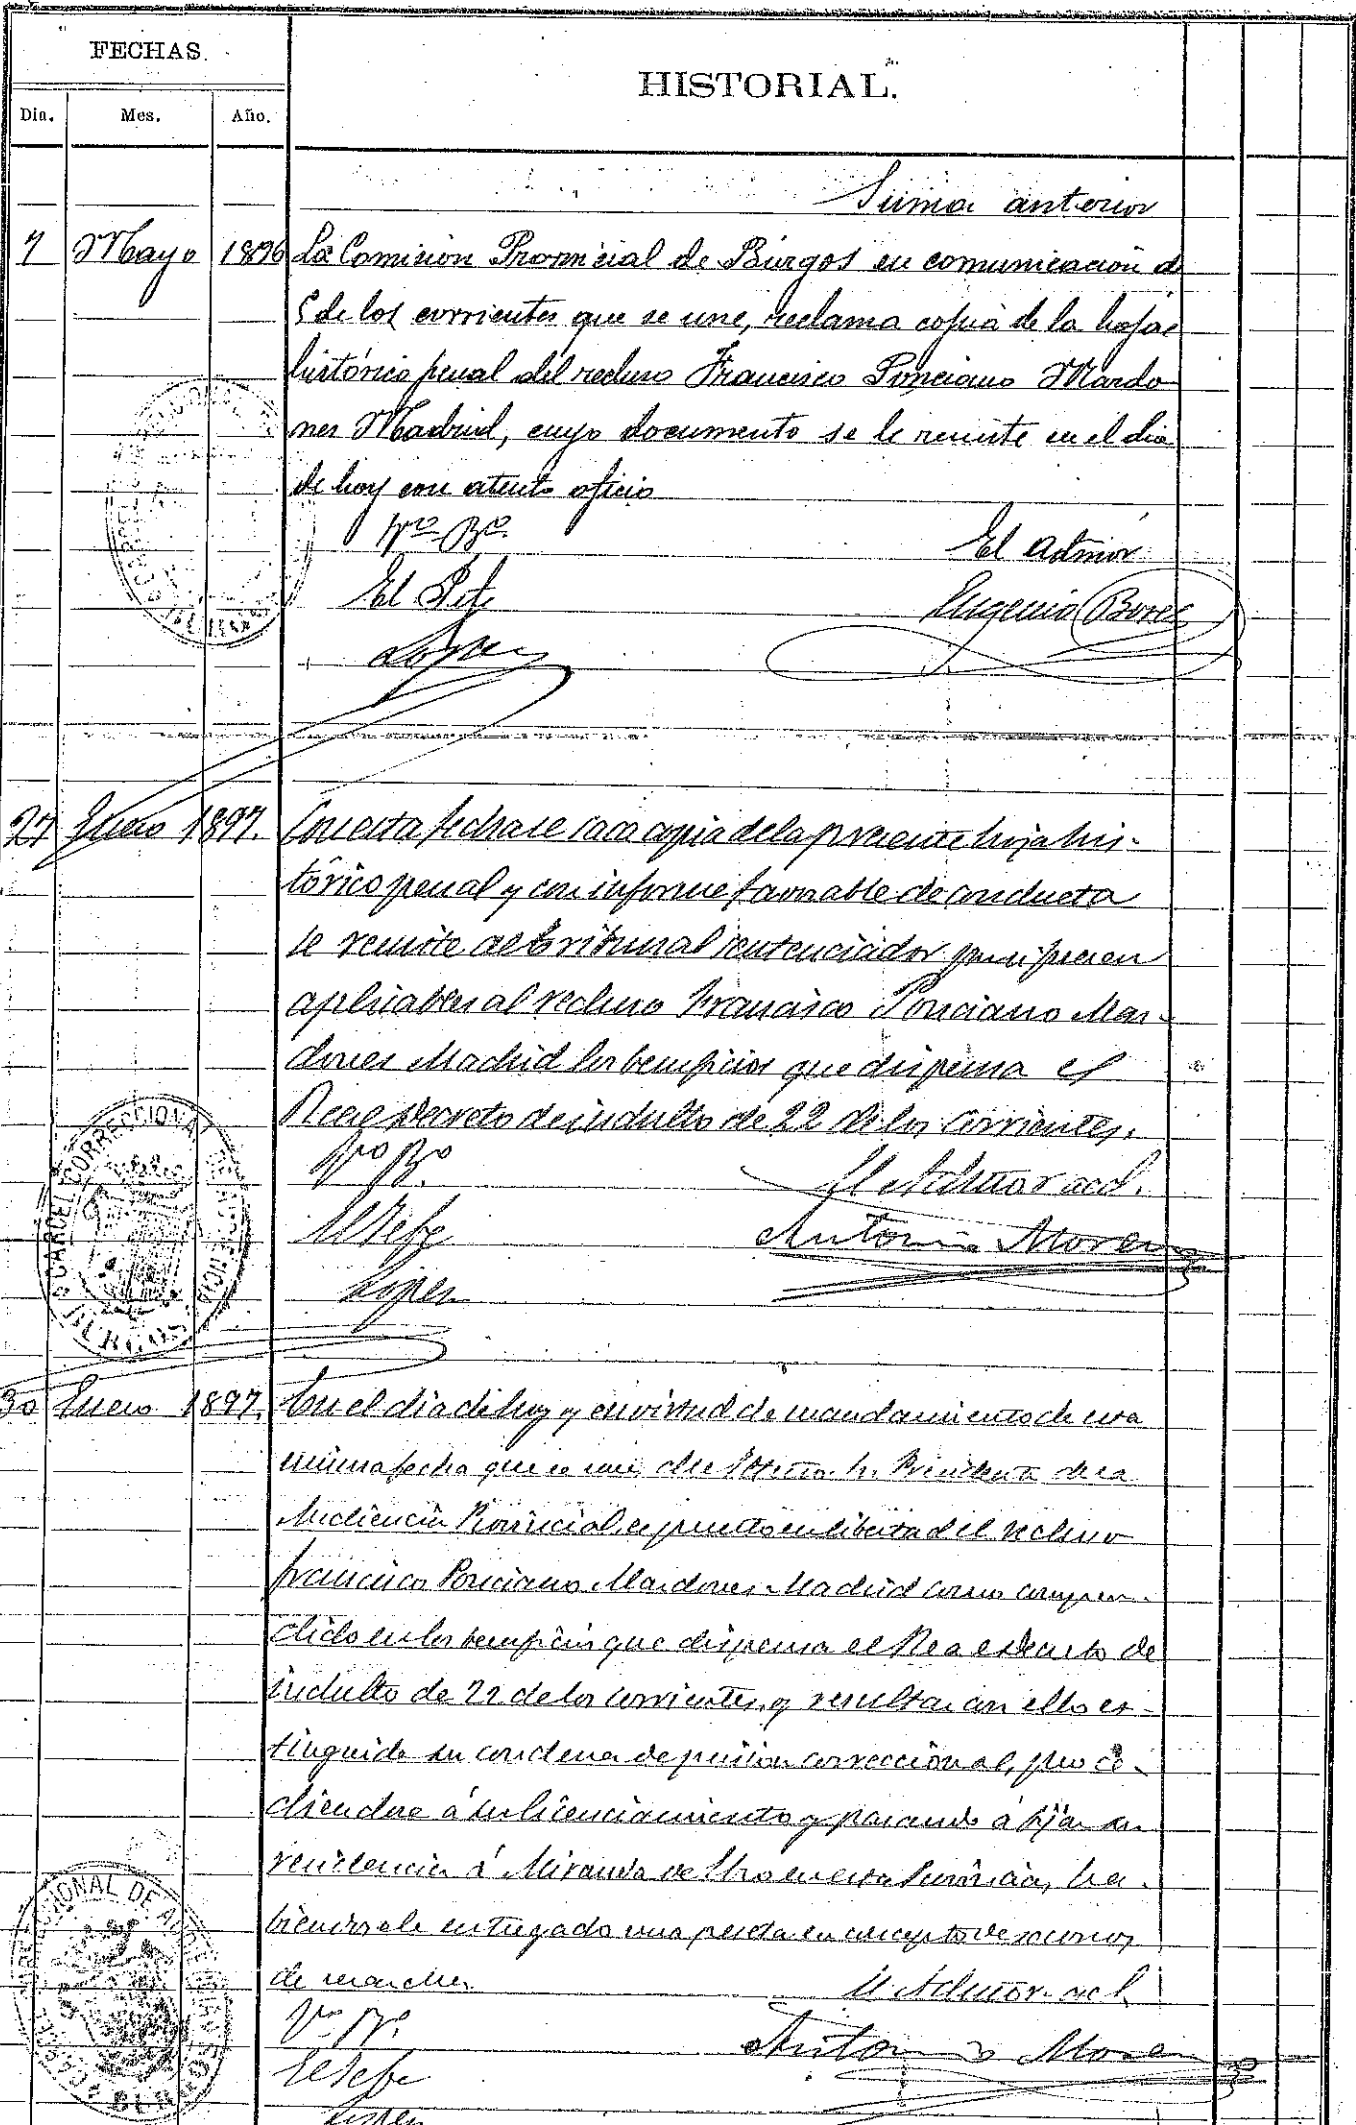 FECHAS.
HISTORIAL.
Dia. Mes. Año.
Suma anterior
7 Mayo 1896 La Comision Provincial de Burgos en comunicacion de
5 de los corrientes que se une, reclama copia de la hoja
histórico penal del recluso Francisco Ponciano Mardo
nes Madrid, cuyo documento se le remite en el dia
de hoy con atento oficio
Vº Bº
El Admor
El Jefe
Eugenio Bores
Lopez
27 Enero 1897. Con esta fecha se saca copia de la presente hoja his-
tórico penal y con informe favorable de conducta
se remite al tribunal sentenciador por si fueren
aplicables al recluso Francisco Ponciano Mar-
dones Madrid los beneficios que dispensa el
Real Decreto de indulto de 22 de los corrientes.
Vº Bº
El Admor acctl.
El Jefe
Antonio Moreno
Lopez
CARCEL CORRECCIONAL
30 Enero 1897. En el dia de hoy y en virtud de mandamiento de esta
misma fecha que se une, del Sr. Presidente de la
Audiencia Provincial, es puesto en libertad el recluso
Francisco Ponciano Mardones Madrid como compren-
dido en los beneficios que dispensa el Real decreto de
indulto de 22 de los corrientes, y resultar con ello es-
tinguida su condena de prision correccional, proce-
diendose á su licenciamiento y pasando á fijar su
residencia á Miranda de Ebro en esta Provincia, ha-
biendosele entregado una peseta en concepto de socorros
de marcha.
El Admor. acctl
Vº Bº
Antonio Moreno
El Jefe
Lopez